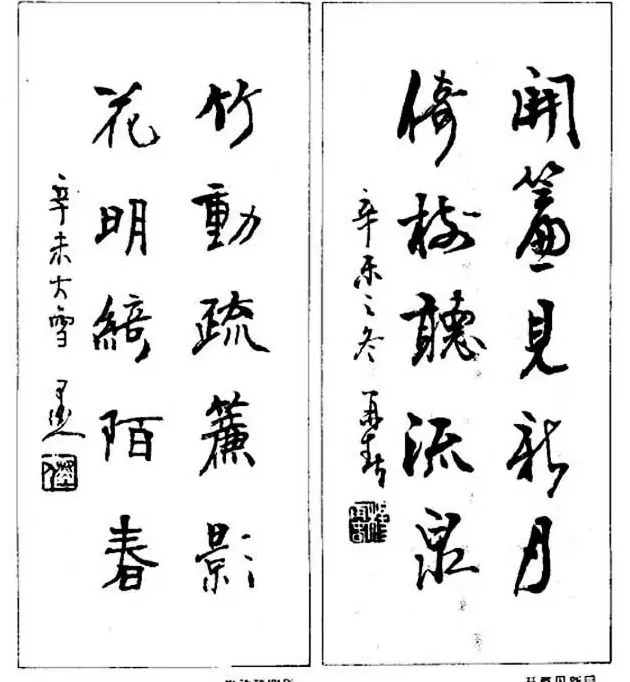 開簾見新月
倚樹聽流泉
辛未之冬
竹動疏簾影
花明綺陌春
辛未大雪